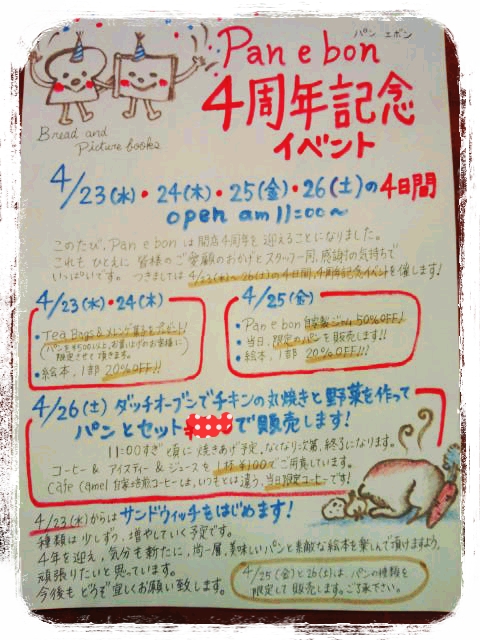 パン エボン
Pan e bon
4周年記念
イベント
Bread and
Picture books
4/23(水)・24(木)・25(金)・26(土)の4日間
open am 11:00〜
このたび、Pan e bon は開店4周年を迎えることになりました。
これも ひとえに 皆様のご愛顧のおかげとスタッフ一同、感謝の気持ちで
いっぱいです。 つきましては 4/23(水)〜26(土)の4日間、4周年記念イベントを催します!
4/23(水)・24(木)
• Tea Bags & メレンゲ菓子をプレゼント!
(パンを¥500以上、お買い上げのお客様に)
限定させて頂きます。
• 絵本、1部 20%OFF!!
4/25(金)
• Pan e bon 自家製ジャム 50%OFF!
• 当日、限定のパンを販売します!!
• 絵本、1部 20%OFF!!!
4/26(土) ダッチオーブンでチキンの丸焼きと野菜を作って
パンとセットで販売します!
11:00すぎ頃に焼きあげ予定、なくなり次第、終了になります。
コーヒー & アイスティー & ジュースを 1杯 ¥100でご用意しています。
Cafe Camel 自家焙煎コーヒーは、いつもとは違う、当日限定コーヒーです!
4/23(水)からはサンドウィッチをはじめます!
種類は少しずつ、増やしていく予定です。
4年を迎え、気分も新たに、尚一層、美味しいパンと素敵な絵本を楽しんで頂けますよう、
頑張りたいと思っています。
今後も どうぞ 宜しくお願い致します。
4/25(金)と26(土)は、パンの種類を
限定して販売します。ご了承下さい。